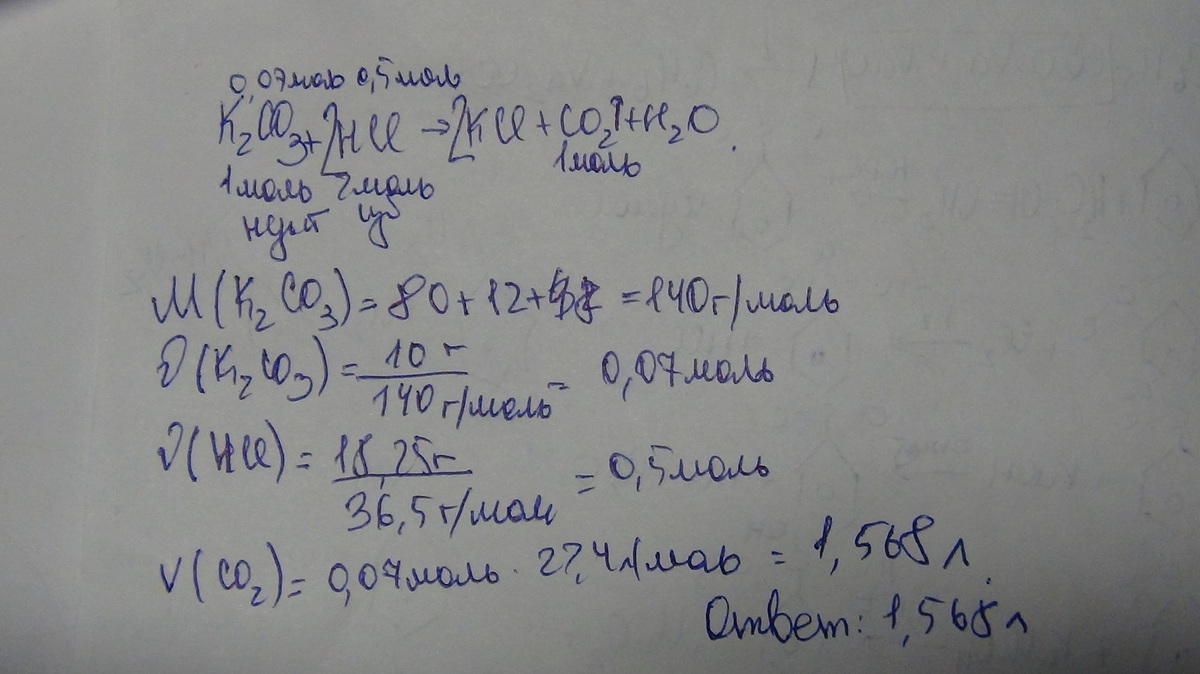 0,07моль 0,5моль
K₂CO₃+2HCl→2KCl+CO₂↑+H₂O.
1моль 2моль 1моль
нед-т изб
M(K₂CO₃)=80+12+48=140г/моль
ν(K₂CO₃)=10г/140г/моль=0,07моль
ν(HCl)=18,25г/36,5г/моль=0,5моль
V(CO₂)=0,07моль·22,4л/моль=1,568л.
Ответ: 1,568л